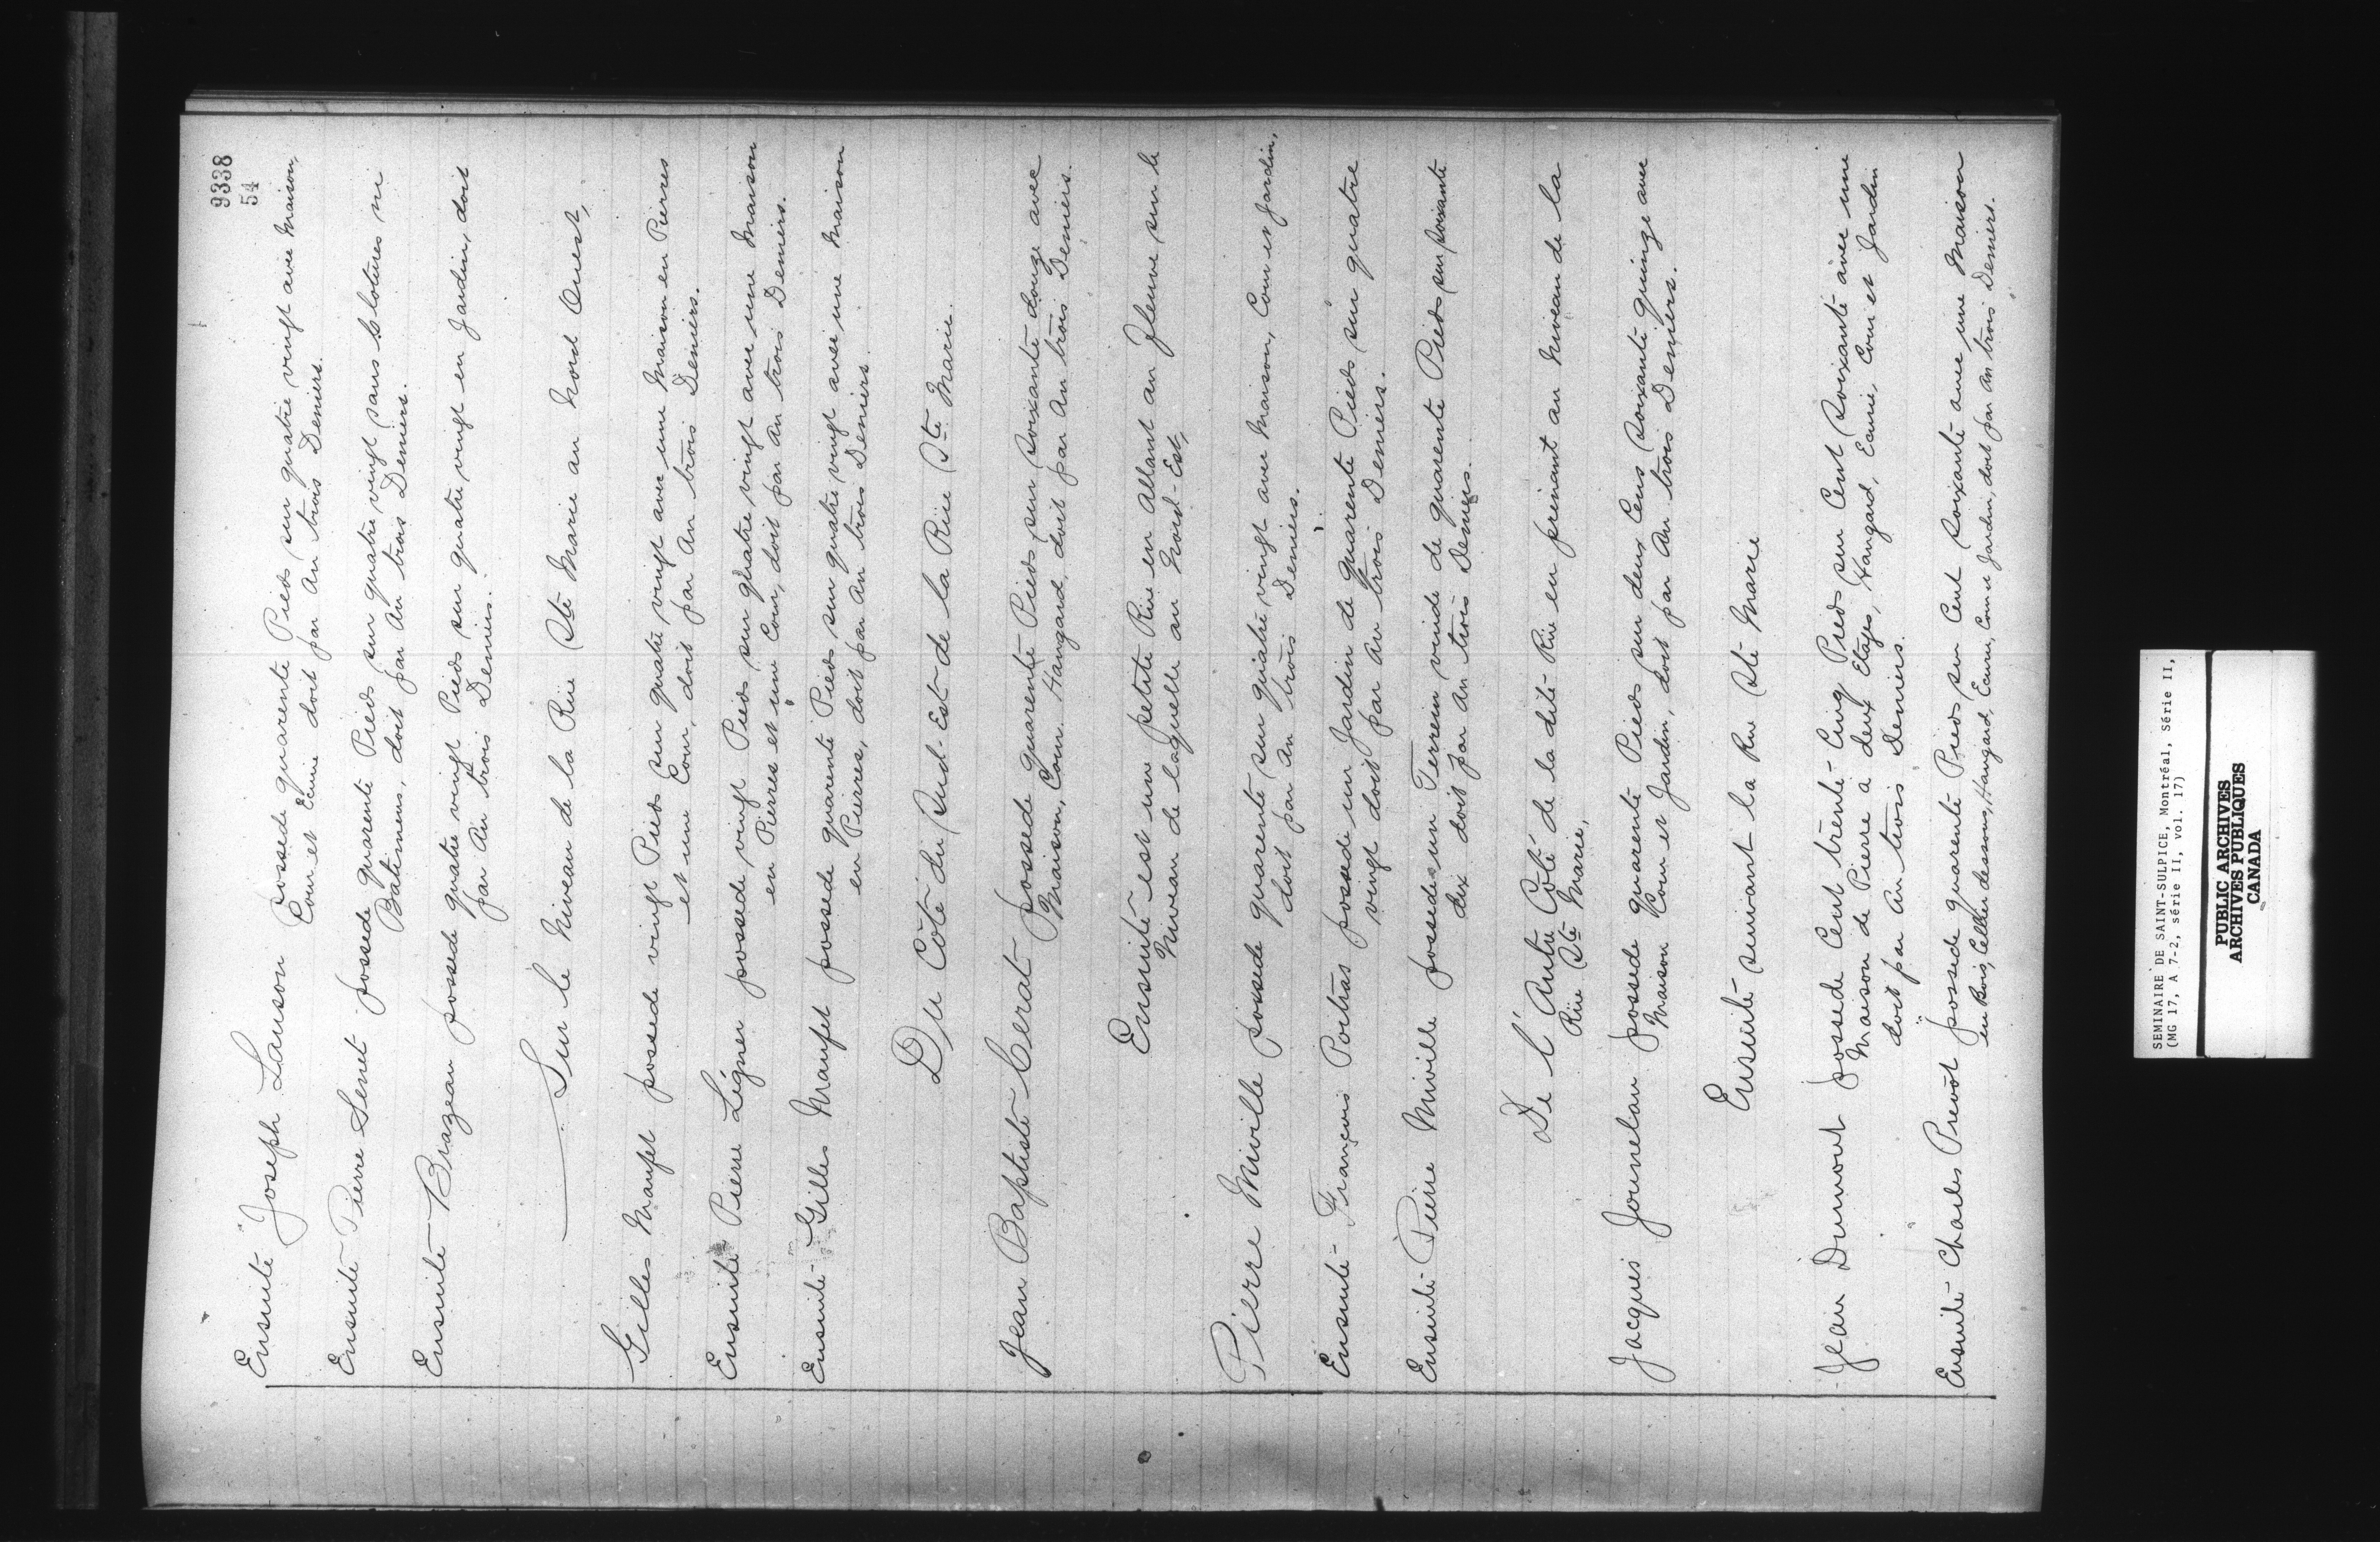 9338
54
Ensuite Joseph Lauson possede quarente Pieds sur quatre vingt avec Maison,
Cour et Ecurie doit par An trois Deniers.
Ensuite Pierre Senet possede quarente Pieds sur quatre vingt sans Clotures ni
Batimens, doit par An trois Deniers.
Ensuite Brazeau possede quatre vingt Pieds sur quatre vingt en Jardin, doit
par An trois Deniers.
Sur le Niveau de la Rüe Ste Marie au Nord Ouest,
Gilles Maufet possede vingt Pieds sur quatre vingt avec une Maison en Pierres
et une Cour, doit par An trois Deniers.
Ensuite Pierre Légner possede vingt Pieds sur quatre vingt avec une Maison
en Pierres et une Cour, doit par An trois Deniers.
Ensuite Gilles Maufet possede quarente Pieds sur quatre vingt avec une Maison
en Pierres, doit par An trois Deniers.
Du Côté du Sud-Est de la Rüe Ste Marie.
Jean Baptiste Cerat possede quarente Pieds sur soixante douze avec
Maison, Cour. Hangard, doit par An trois Deniers.
Ensuite est une petite Rüe en Allant au Fleuve sur le
Niveau de laquelle au Nord-Est,
Pierre Miville possede quarente sur quatre vingt avec Maison, Cour et Jardin,
doit par An trois Deniers.
Ensuite François Poitras possede un Jardin de quarente Pieds sur quatre
vingt doit par An trois Deniers.
Ensuite Pierre Miville possede un Terrein vuide de quarente Pieds sur soixante
dix doit par An trois Deniers.
De l'Autre Côté de la dite Rüe en prenant au Niveau de la
Rüe Ste Marie,
Jacques Journelau possede quarente Pieds sur deux Cens soixante quinze avec
Maison Cour et Jardin, doit par An trois Deniers.
Ensuite suivant la Rue Ste Marie
Jean Dumont possede Cent trente-Cinq Pieds sur Cent soixante avec une
Maison de Pierre à deux Etages, Hangard, Ecurie, Cour et Jardin
doit par An trois Deniers.
Ensuite Charles Prevôt possede quarente Pieds sur Cent soixante avec une Maison
en Bois, Cellier dessous, Hangard, Ecurie, Cour et Jardin, doit par An trois Deniers.
SEMINAIRE DE SAINT-SULPICE, Montréal, Série II,
(MG 17, A 7-2, série II, vol. 17)
PUBLIC ARCHIVES
ARCHIVES PUBLIQUES
CANADA